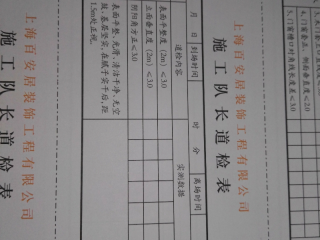 上海百安居装饰工程有限公司
施工队长道检表
月 日 到场时间 时 分 离场时间
道检内容 实测数据
表面平整度（2m）≤3.0
立面垂直度（2m）≤3.0
阴阳角方正≤3.0
表面平整、光滑、清洁干净、无空
鼓、基层坚实，在腻子实干后，距
1.5m处正视。
上海百安居装饰工程有限公司
施工队长道检表